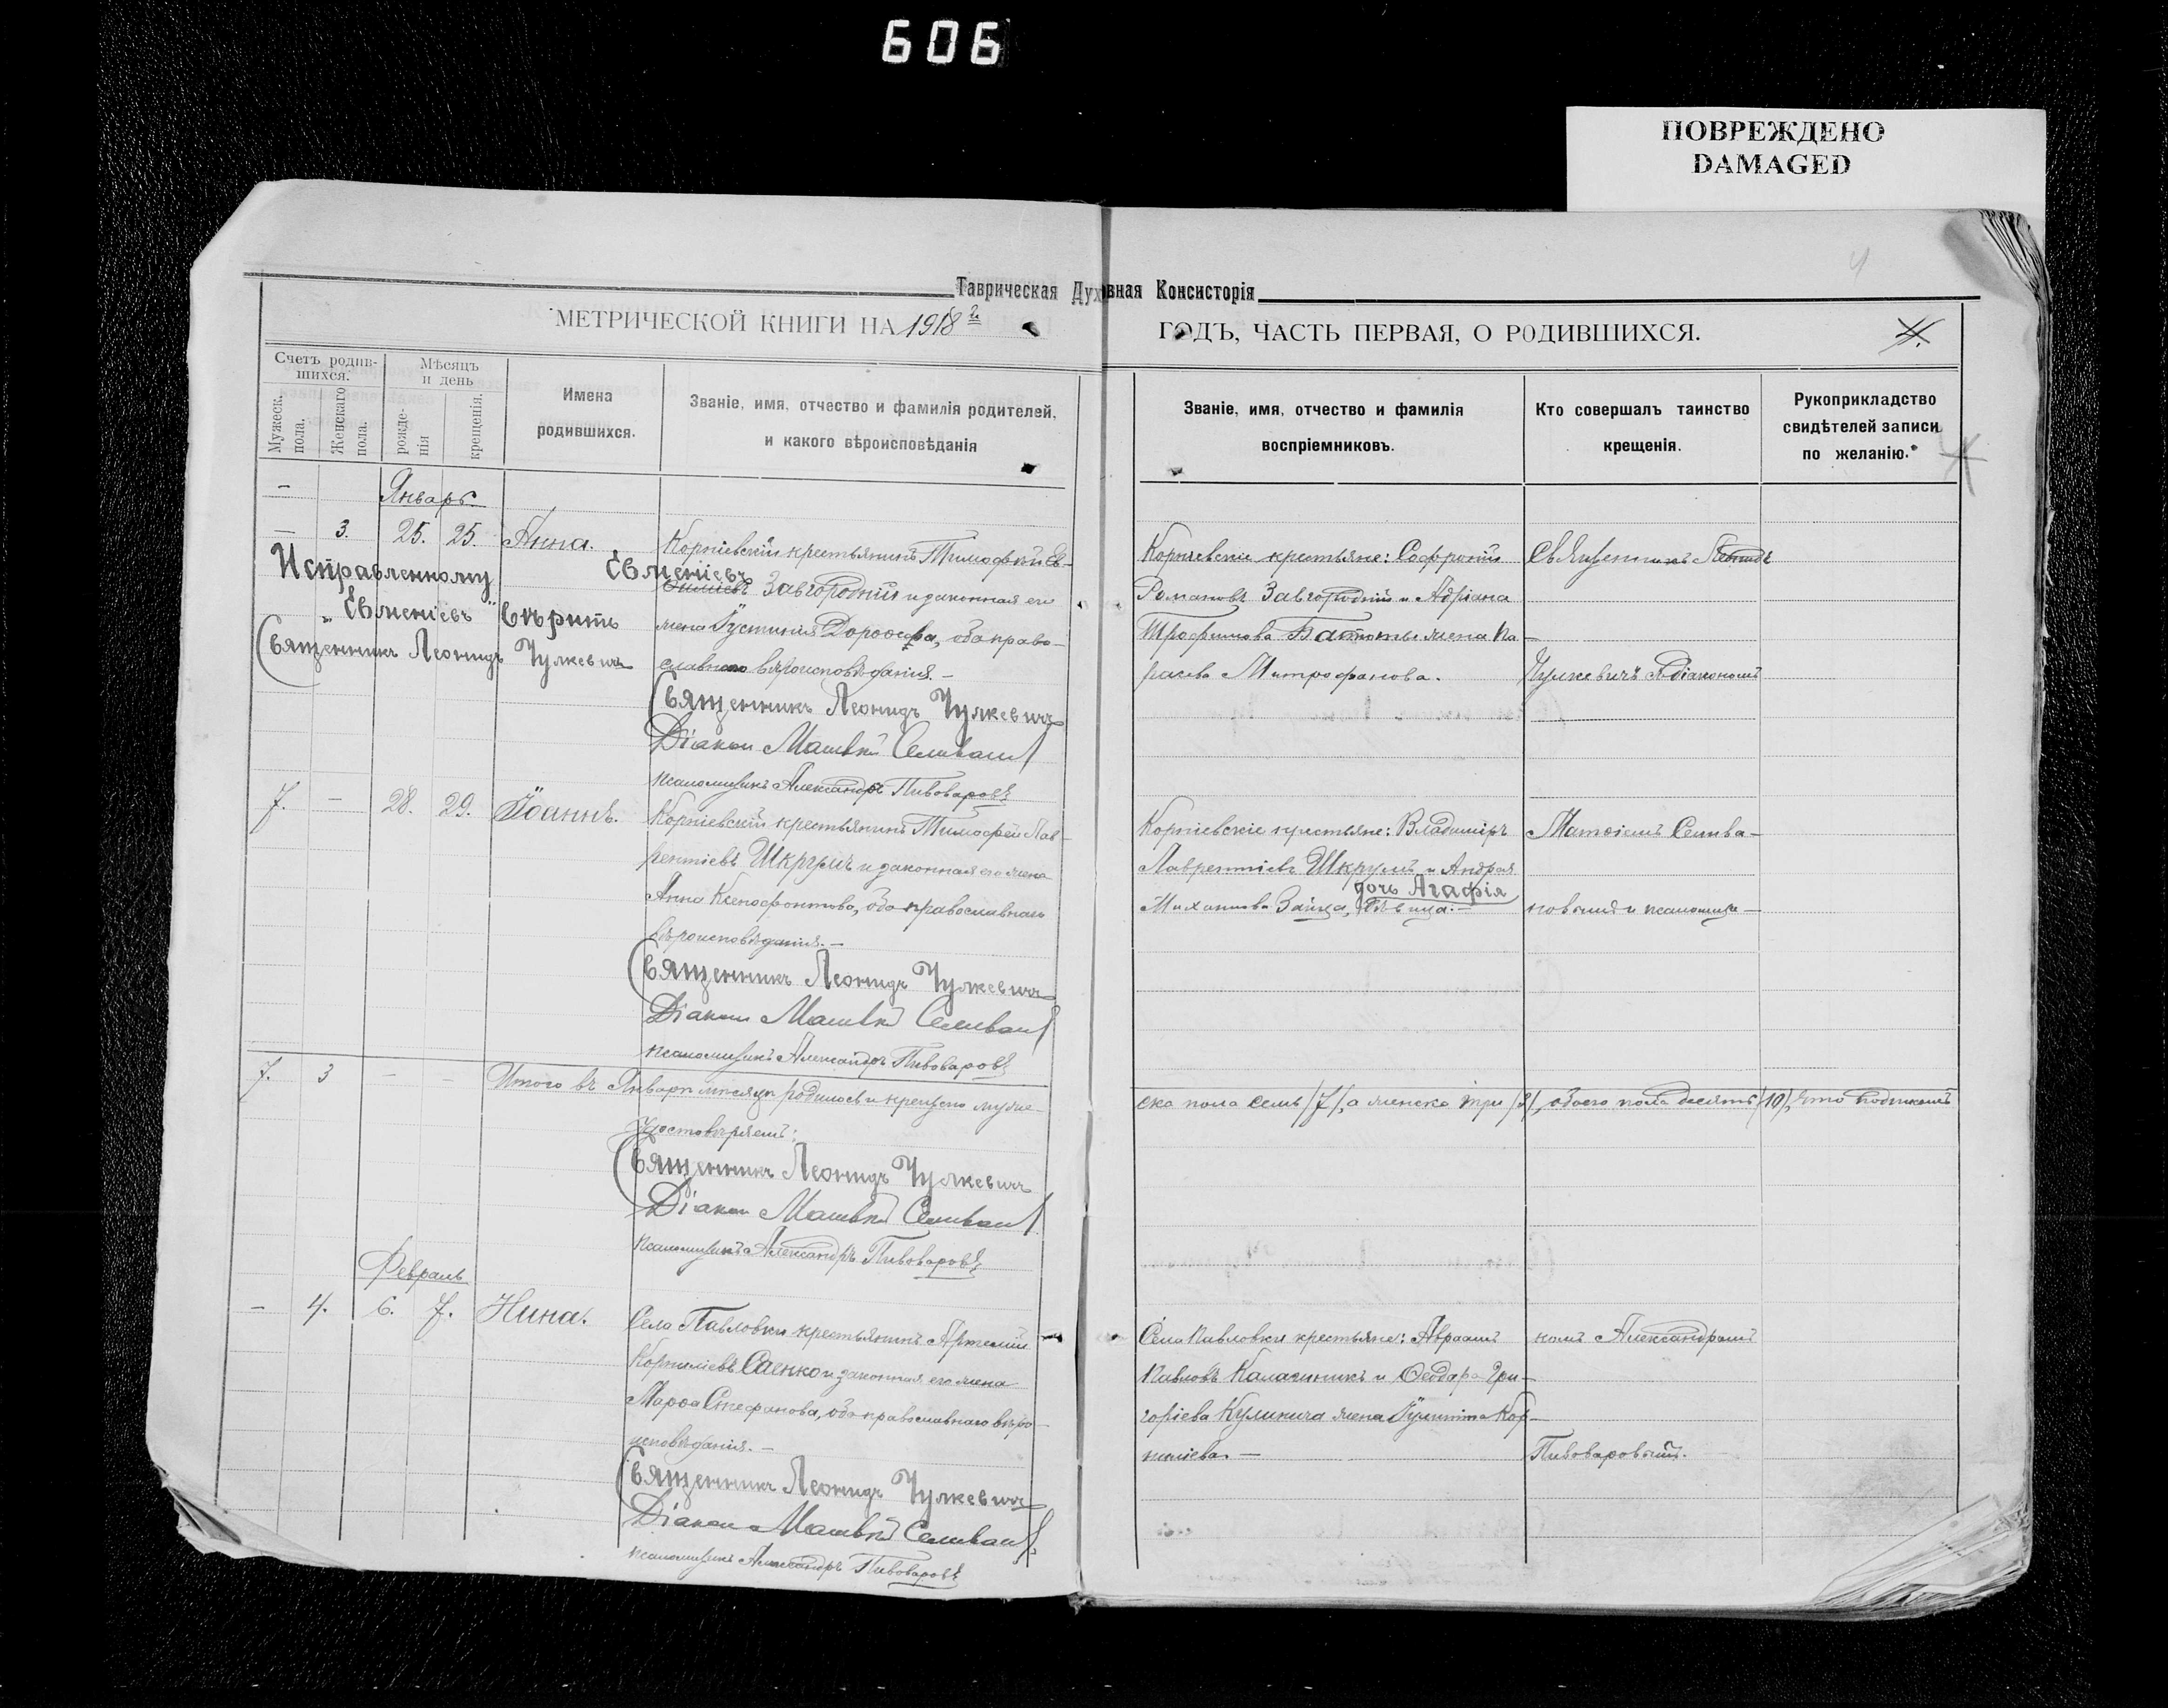 606
ПОВРЕЖДЕНО
DAMAGED
4
Таврическая Духовная Консисторія
МЕТРИЧЕСКОЙ КНИГИ НА 1918 г.
ГОДЪ, ЧАСТЬ ПЕРВАЯ, О РОДИВШИХСЯ.
Счетъ родив-
шихся.
Мужеск.
пола.
Женскаго
пола.
Мѣсяцъ
и день
рожде-
нія
крещенія.
Имена
родившихся.
Званіе, имя, отчество и фамилія родителей,
и какого вѣроисповѣданія
Званіе, имя, отчество и фамилія
воспріемниковъ.
Кто совершалъ таинство
крещенія.
Рукоприкладство
свидѣтелей записи
по желанію.
Январь.
— 3. 25. 25. Анна.
Корніевскій крестьянинъ Тимофей Ев-
Евменіевъ
Завгородній и законная его
жена Іустинія Дороѳева, оба право-
славнаго вѣроисповѣданія.—
Исправленному
„Евменіевъ" вѣрить
Священникъ Леонидъ Чулкевичъ
Священникъ Леонидъ Чулкевичъ
Діаконъ Матвѣй Селиванъ
Псаломщикъ Александръ Пивоваровъ
Корніевскіе крестьяне: Софроній
Романовъ Завгородній и Адріана
Трофимова жена Па-
Митрофанова.
Священникъ Леонидъ
Чулкевичъ съ діакономъ
7. — 28. 29. Іоаннъ.
Корніевскій крестьянинъ Тимофей Лав-
рентіевъ Шкрумъ и законная его жена
Анна Ксенофонтова, оба православнаго
вѣроисповѣданія.—
Священникъ Леонидъ Чулкевичъ
Діаконъ Матвѣй Селиванъ
Псаломщикъ Александръ Пивоваровъ
Корніевскіе крестьяне: Владиміръ
Лаврентіевъ Шкрумъ и Андрея
дочь Агафія
Зайца, дѣвица.—
Матѳіемъ Селива-
новымъ и псаломщи-
7. 3 — — Итого въ Январѣ мѣсяцѣ родилось и крещено муже-
ска пола семь /7/, а женска три /3/, обоего пола десять /10/, что подписомъ
удостовѣряемъ:
Священникъ Леонидъ Чулкевичъ
Діаконъ Матвѣй Селиванъ
Псаломщикъ Александръ Пивоваровъ
Февраль
— 4. 6. 7. Нина.
Села Павловки крестьянинъ Артемій
Корниліевъ Саенко и законная его жена
Марѳа Стефанова, оба православнаго вѣро-
исповѣданія.—
Священникъ Леонидъ Чулкевичъ
Діаконъ Матвѣй Селиванъ
Псаломщикъ Александръ Пивоваровъ
Села Павловки крестьяне: Авраамъ
Павловъ Калачникъ и Ѳеодора Гри-
горіева жена Кор-
ниліева.—
комъ Александромъ
Пивоваровымъ.